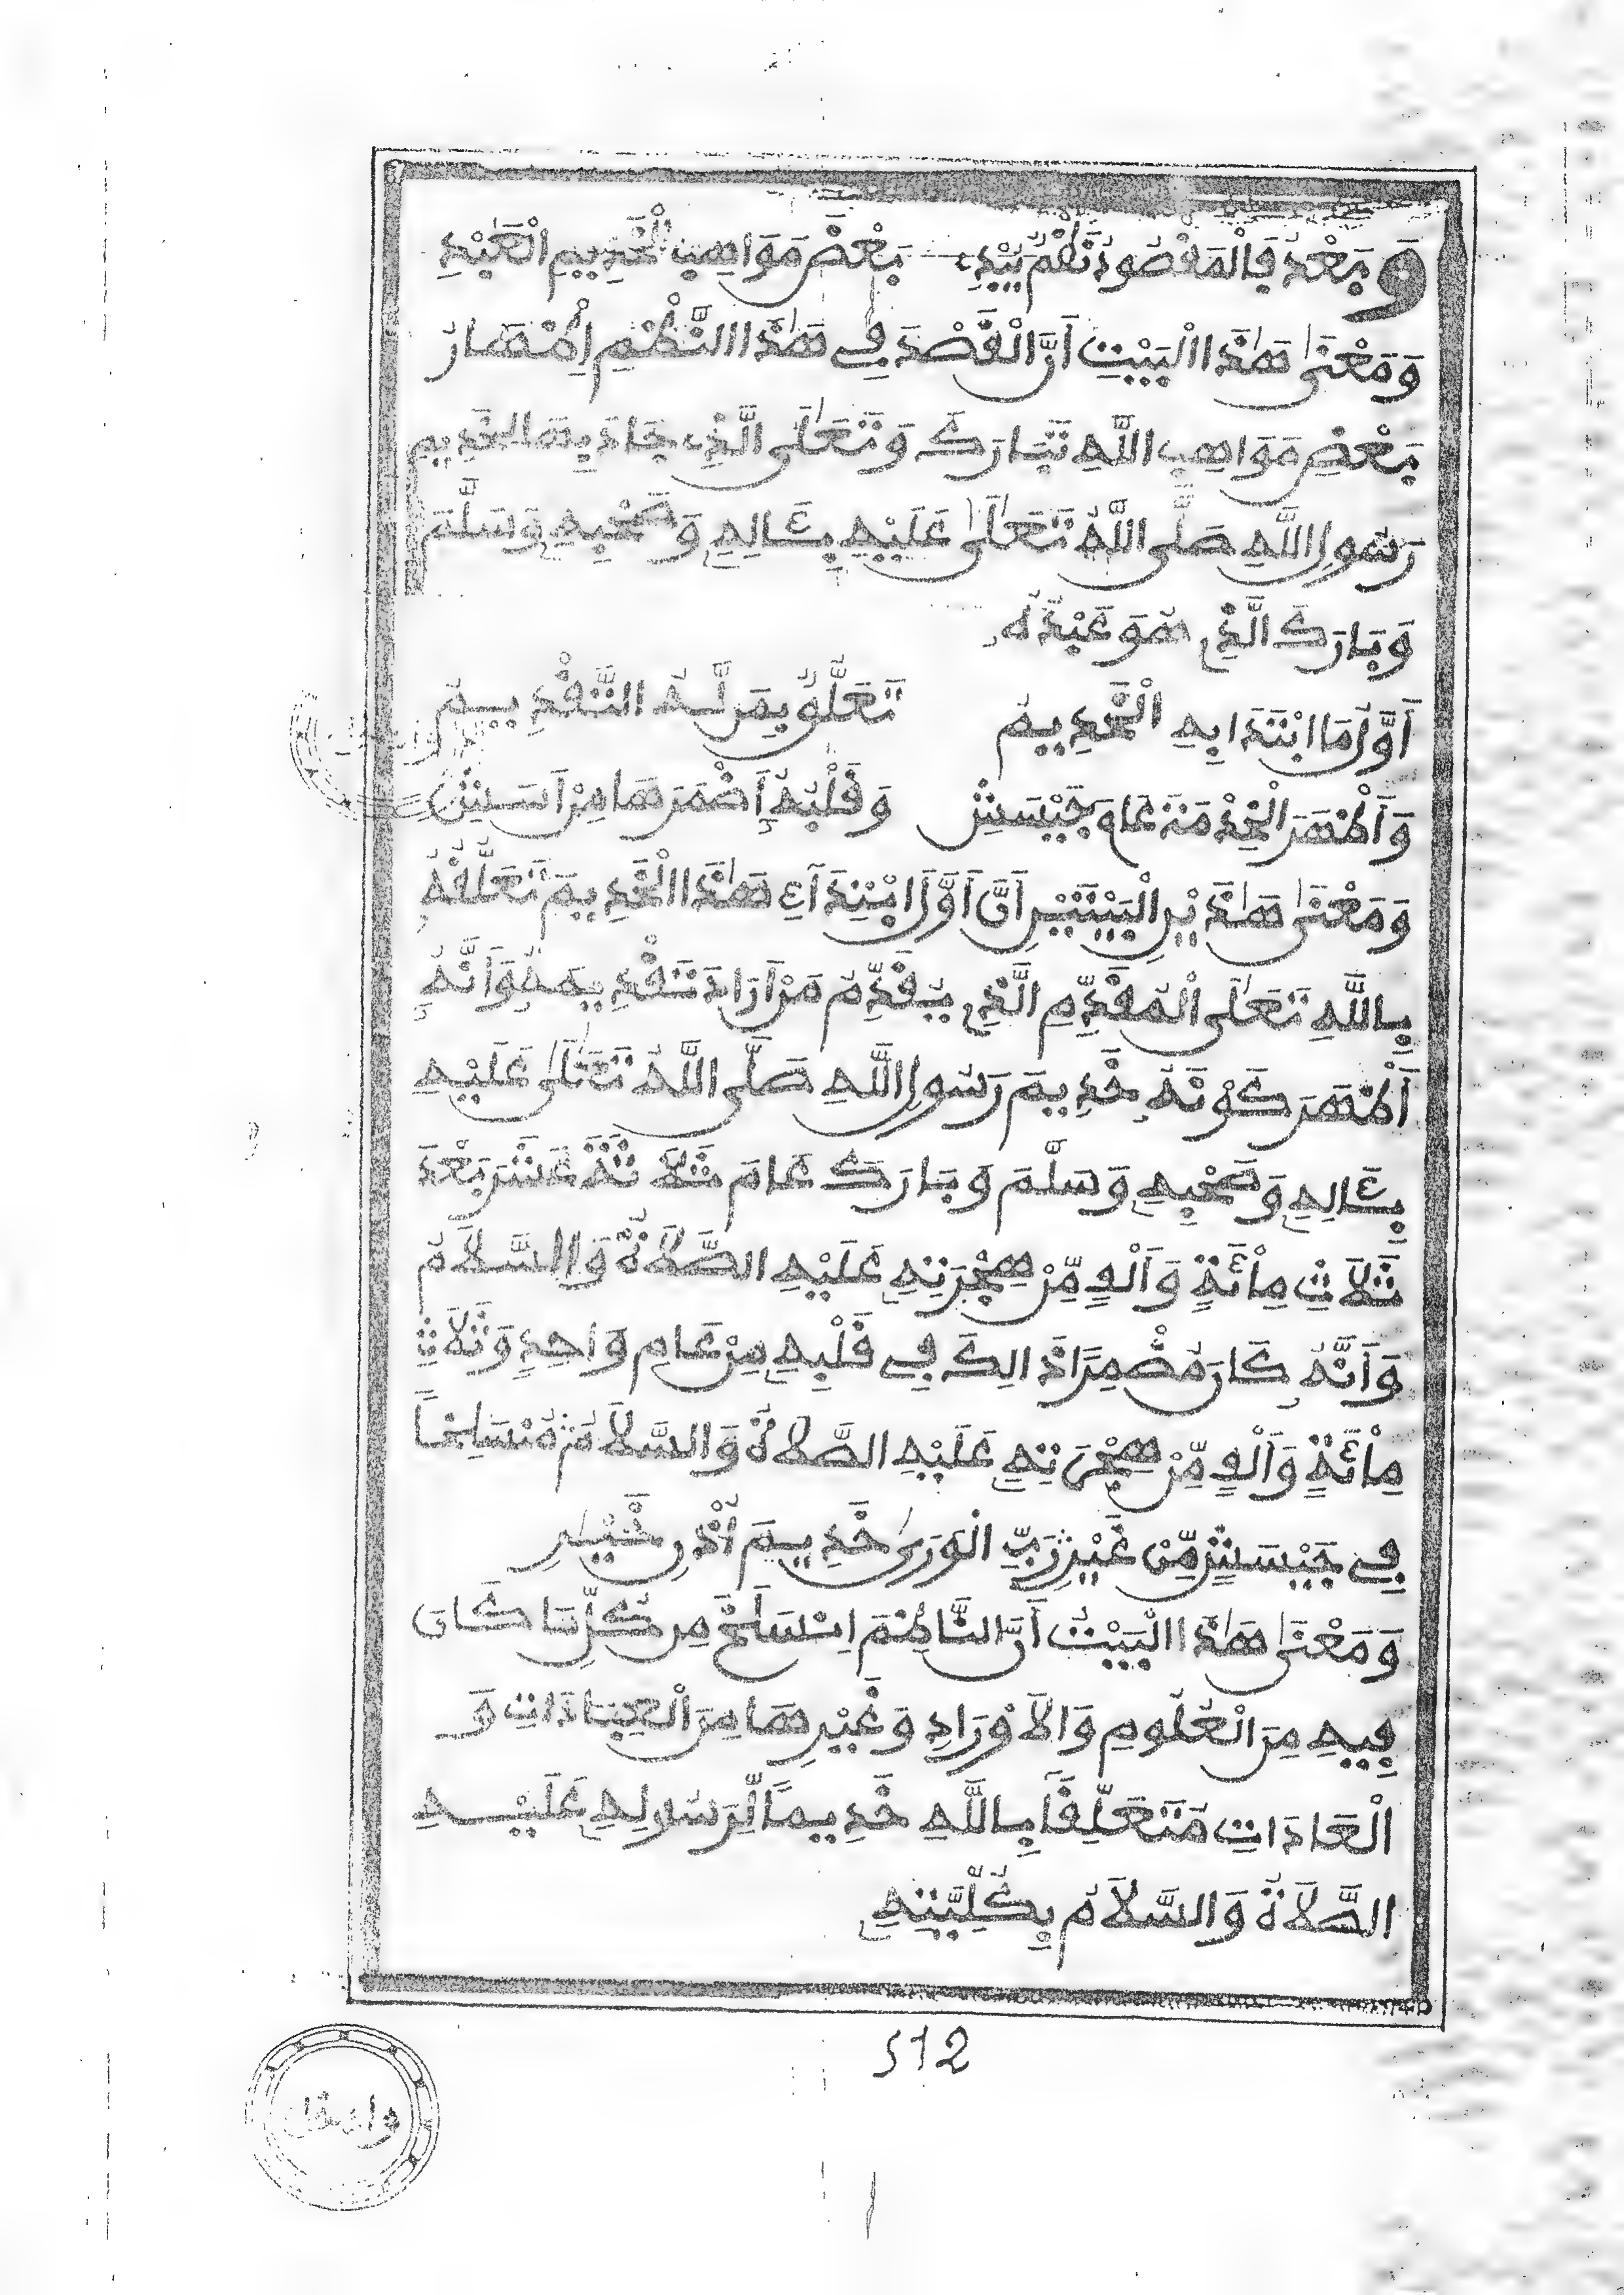 وَبَعْدُ فَالْمَقْصُودُ نَظْمٌ يُبْدِي بَعْضَ مَوَاهِبِ الْخَدِيمِ الْعَبْدِ
وَمَعْنَى هَٰذَا الْبَيْتِ أَنَّ الْقَصْدَ فِي هَٰذَا النَّظْمِ إِظْهَارُ
بَعْضِ مَوَاهِبِ اللَّهِ تَبَارَكَ وَتَعَٰلَى الَّذِي جَادَ بِهَا لِخَدِيمِ
رَسُولِ اللَّهِ صَلَّى اللَّهُ تَعَٰلَى عَلَيْهِ بِـَٔالِهِ وَصَحْبِهِ وَسَلَّمَ
وَبَارَكَ الَّذِي هُوَ عَبْدُهُ
أَوَّلُ مَا ابْتَدَا بِهِ الْخَدِيمُ تَعَلُّقٌ بِمَن لَّهُ التَّقْدِيمُ
وَأَظْهَرَ الْخِدْمَةَ عَامَ جَيْسَشِ وَقَلْبُهُ أَضْمَرَهَا مِنْ أَسَشِ
وَمَعْنَى هَٰذَيْنِ الْبَيْتَيْنِ أَنَّ أَوَّلَ ابْتِدَآءِ هَٰذَا الْخَدِيمِ تَعَلُّقُهُ
بِاللَّهِ تَعَٰلَى الْمُقَدِّمِ الَّذِي يُقَدِّمُ مَنْ أَرَادَ تَقْدِيمَهُ وَأَنَّهُ
أَظْهَرَ كَوْنَهُ خَدِيمَ رَسُولِ اللَّهِ صَلَّى اللَّهُ تَعَٰلَى عَلَيْهِ
بِـَٔالِهِ وَصَحْبِهِ وَسَلَّمَ وَبَارَكَ عَامَ ثَلَاثَةَ عَشَرَ بَعْدَ
ثَلَاثِ مِائَةٍ وَأَلْفٍ مِّنْ هِجْرَتِهِ عَلَيْهِ الصَّلَاةُ وَالسَّلَامُ
وَأَنَّهُ كَانَ مُضْمِرًا ذَالِكَ فِي قَلْبِهِ مِنْ عَامِ وَاحِدٍ وَثَلَاثِ
مِائَةٍ وَأَلْفٍ مِّنْ هِجْرَتِهِ عَلَيْهِ الصَّلَاةُ وَالسَّلَامُ مُنْسَلِخاً
فِي جَيْسَشٍ مِّنْ غَيْرِ رَبِّ الْوَرَىٰ خَدِيمَ
وَمَعْنَى هَٰذَا الْبَيْتِ أَنَّ النَّاظِمَ انْسَلَخَ مِن كُلِّ مَا كَانَ
فِيهِ مِنَ الْعُلُومِ وَالْأَوْرَادِ وَغَيْرِهَا مِنَ الْعِبَادَاتِ وَ
الْعَادَاتِ مُتَعَلِّقاً بِاللَّهِ خَدِيماً لِّرَسُولِهِ عَلَيْهِ
الصَّلَاةُ وَالسَّلَامُ بِكُلِّيَّتِهِ
512